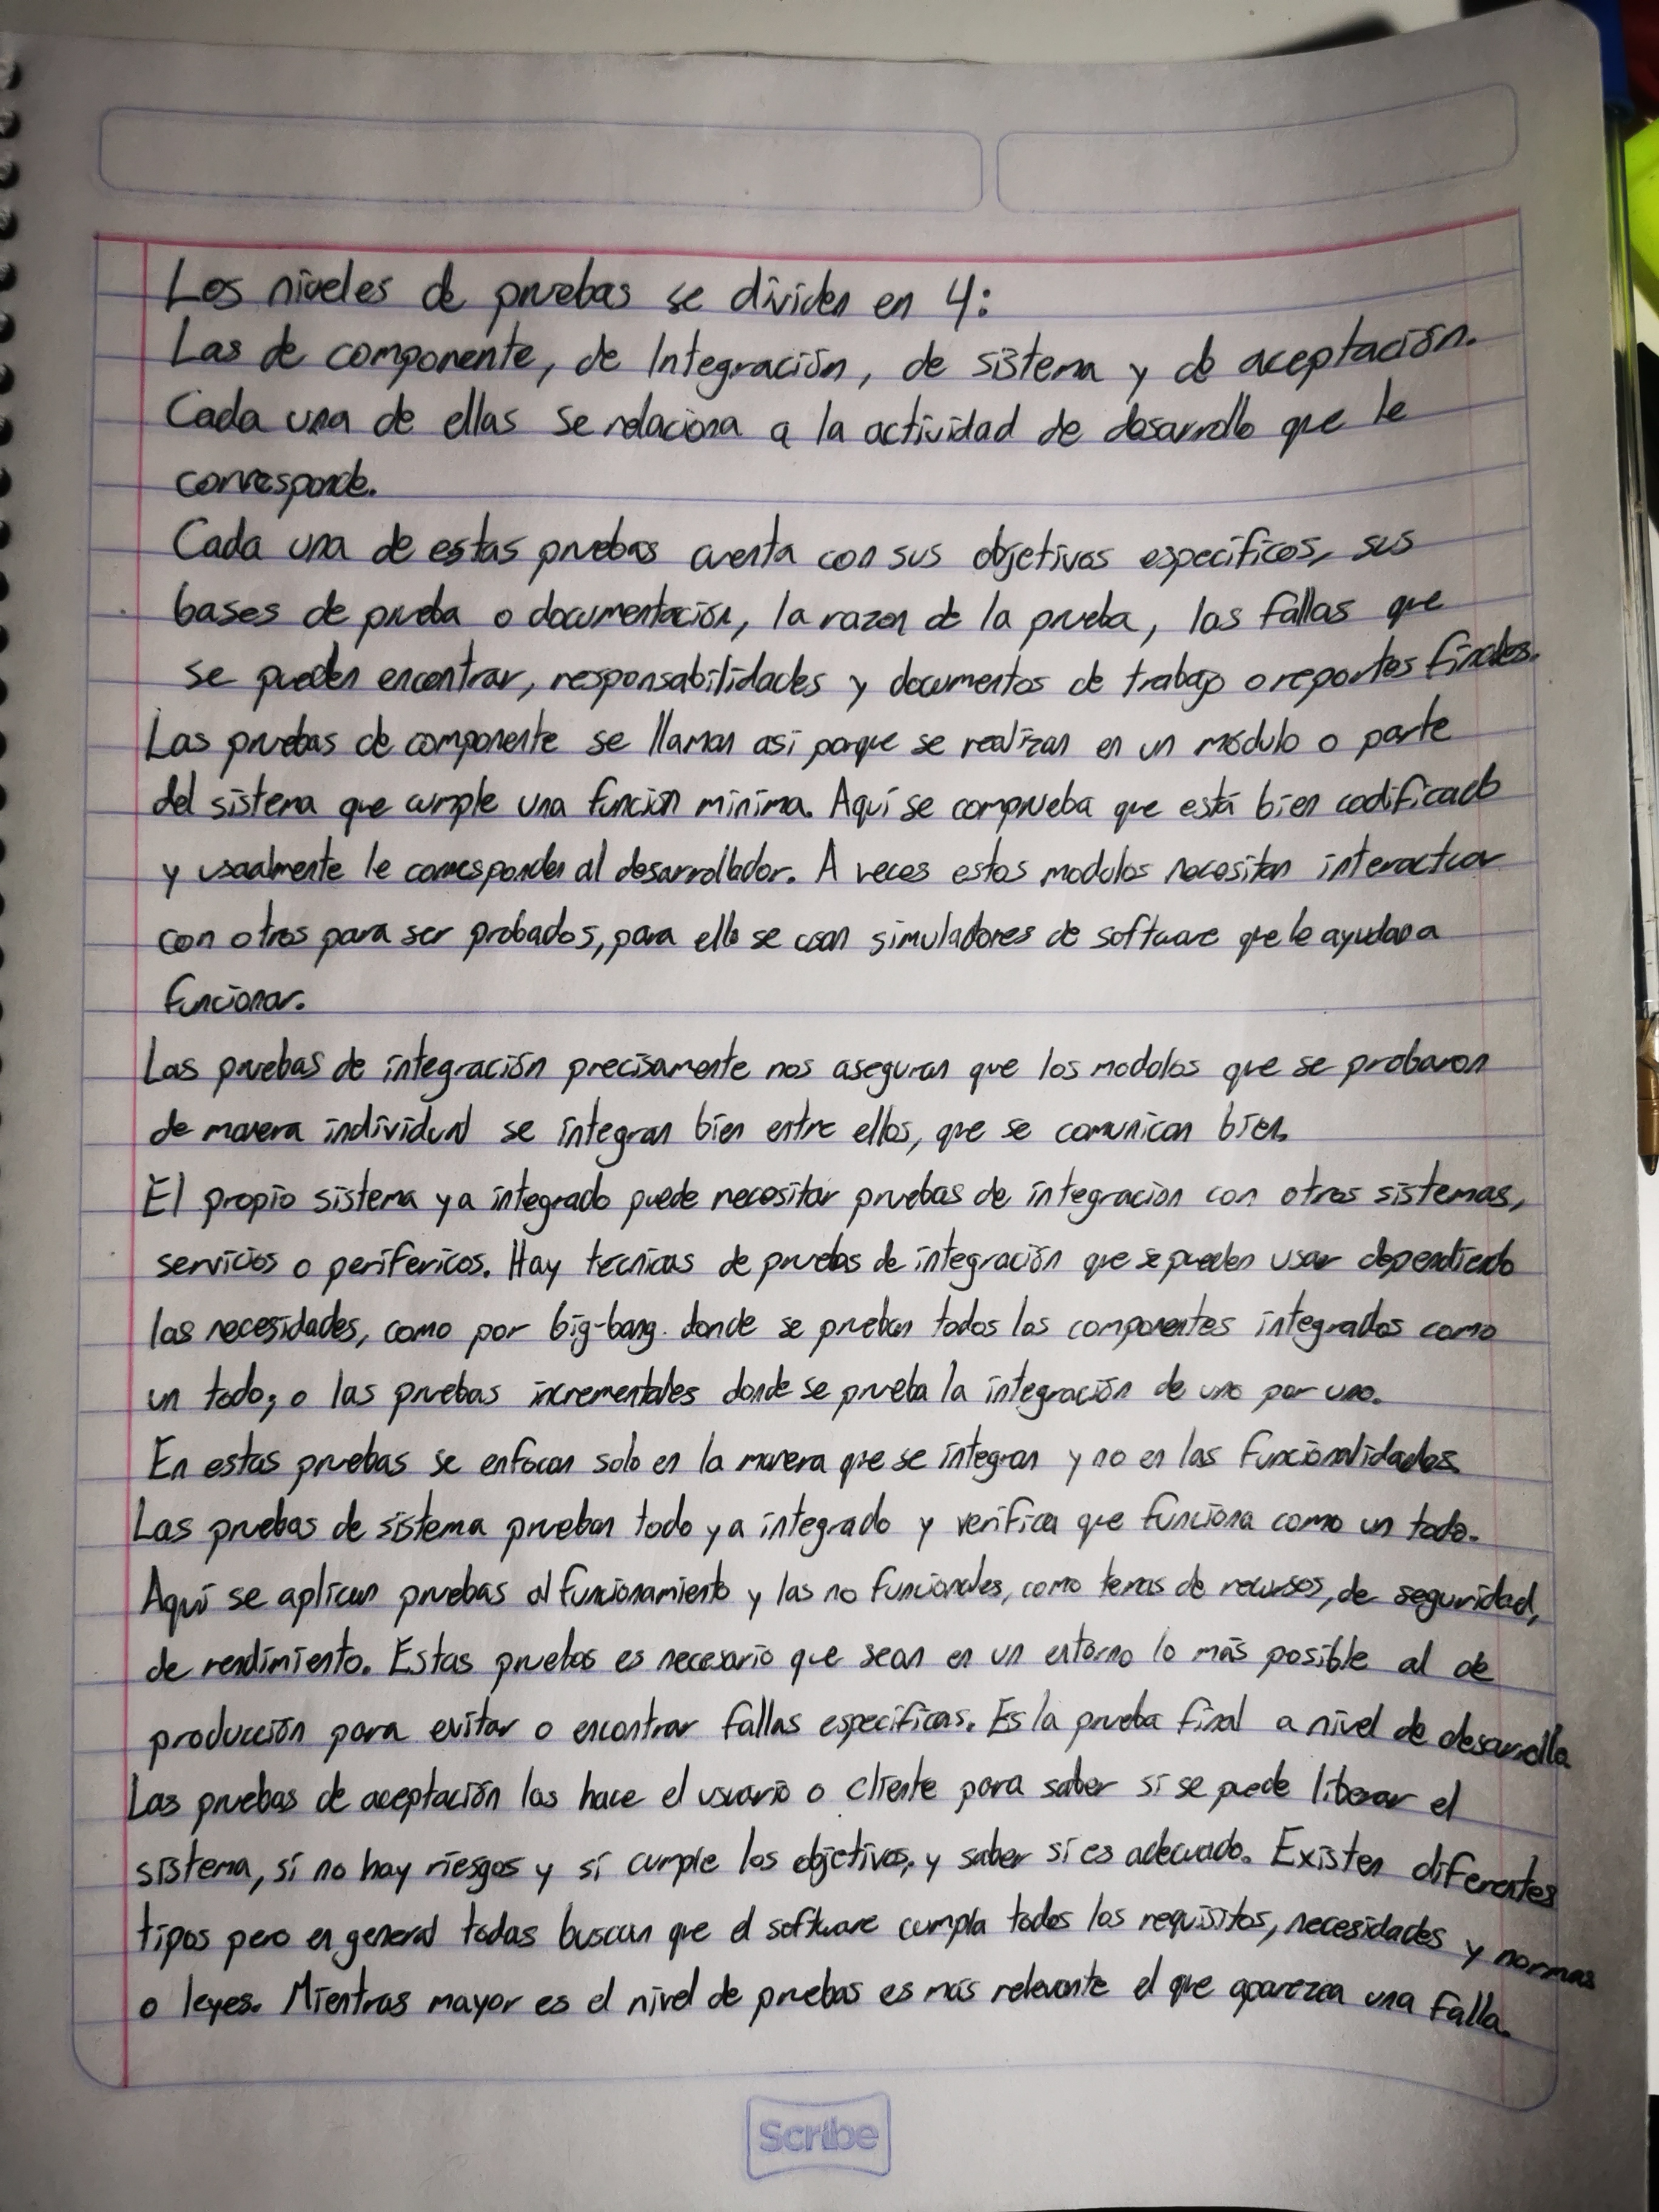 Los niveles de pruebas se dividen en 4:
Las de componente, de Integración, de sistema y de aceptación.
Cada una de ellas se relaciona a la actividad de desarrollo que le
corresponde.
Cada una de estas pruebas cuenta con sus objetivos especificos, sus
bases de prueba o documentación, la razon de la prueba, las fallas que
se pueden encontrar, responsabilidades y documentos de trabajo o reportes finales.
Las pruebas de componente se llaman asi porque se realizan en un módulo o parte
del sistema que cumple una función minima. Aquí se comprueba que está bien codificado
y usualmente le corresponden al desarrollador. A veces estos modolos necesitan interactuar
con otros para ser probados, para ello se usan simuladores de software que le ayudan a
funcionar.
Las pruebas de integración precisamente nos aseguran que los modolos que se probaron
de manera individual se integran bien entre ellos, que se comunican bien.
El propio sistema ya integrado puede necesitar pruebas de integración con otros sistemas,
servicios o perifericos. Hay tecnicas de pruebas de integración que se pueden usar dependiendo
las necesidades, como por big-bang. donde se prueban todos los componentes integrados como
un todo; o las pruebas incrementales donde se prueba la integración de uno por uno.
En estas pruebas se enfocan solo en la manera que se integran y no en las funcionalidades
Las pruebas de sistema prueban todo ya integrado y verifica que funciona como un todo.
Aquí se aplican pruebas al funcionamiento y las no funcionales, como temas de recursos, de seguridad,
de rendimiento. Estas pruebas es necesario que sean en un entorno lo más posible al de
producción para evitar o encontrar fallas especificas. Es la prueba final a nivel de desarrollo
Las pruebas de aceptación las hace el usuario o cliente para saber si se puede liberar el
sistema, si no hay riesgos y si cumple los objetivos, y saber si es adecuado. Existen diferentes
tipos pero en general todas buscan que el software cumpla todos los requisitos, necesidades y normas
o leyes. Mientras mayor es el nivel de pruebas es más relevante el que aparezca una falla.
Scribe